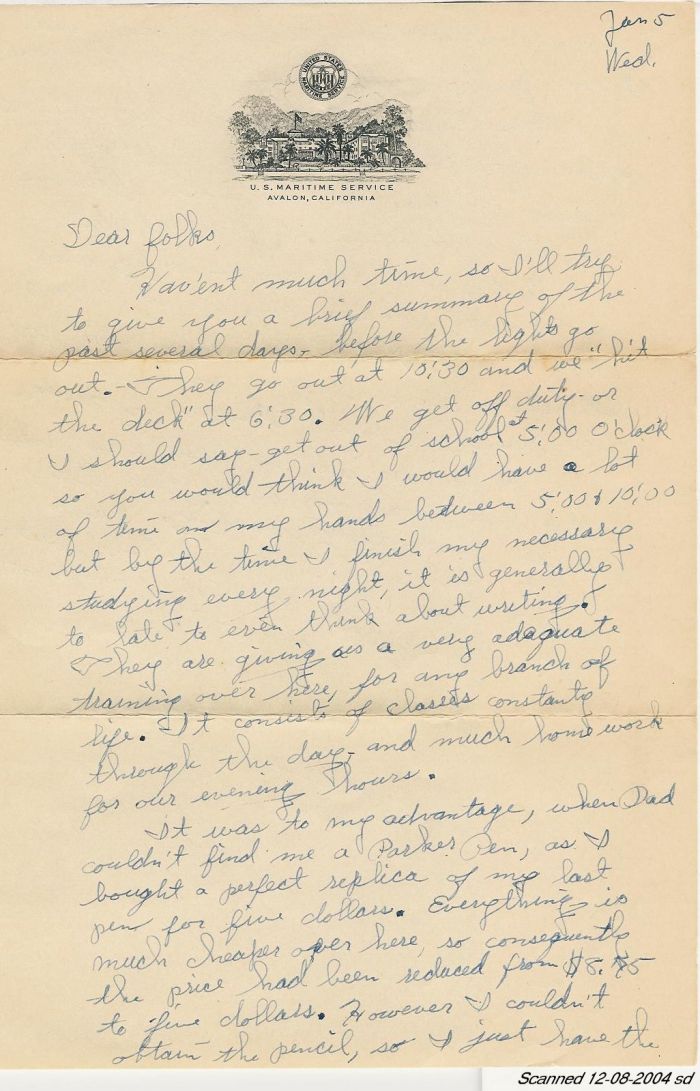 Jan 5
Wed.
UNITED STATES
MARITIME SERVICE
U.S. MARITIME SERVICE
AVALON, CALIFORNIA
Dear folks,
Hav'ent much time, so I'll try
to give you a brief summary of the
past several days - before the lights go
out. - They go out at 10:30 and we "hit
the deck" at 6:30. We get off duty - or
I should say - get out of school at 5:00 O'clock
so you would think I would have a lot
of time on my hands between 5:00 & 10:00
but by the time I finish my necessary
studying every night, it is generally
to late to even think about writing.
They are giving us a very adaquate
training over here, for any branch of
life. It consists of classes constanty
through the day, and much home work
for our evening hours.
It was to my advantage, when Dad
couldn't find me a Parker Pen, as I
bought a perfect replica of my last
pen for five dollars. Everything is
much cheaper over here, so consequently
the price had been reduced from $8.75
to five dollars. However I couldn't
obtain the pencil, so I just have the
Scanned 12-08-2004 sd